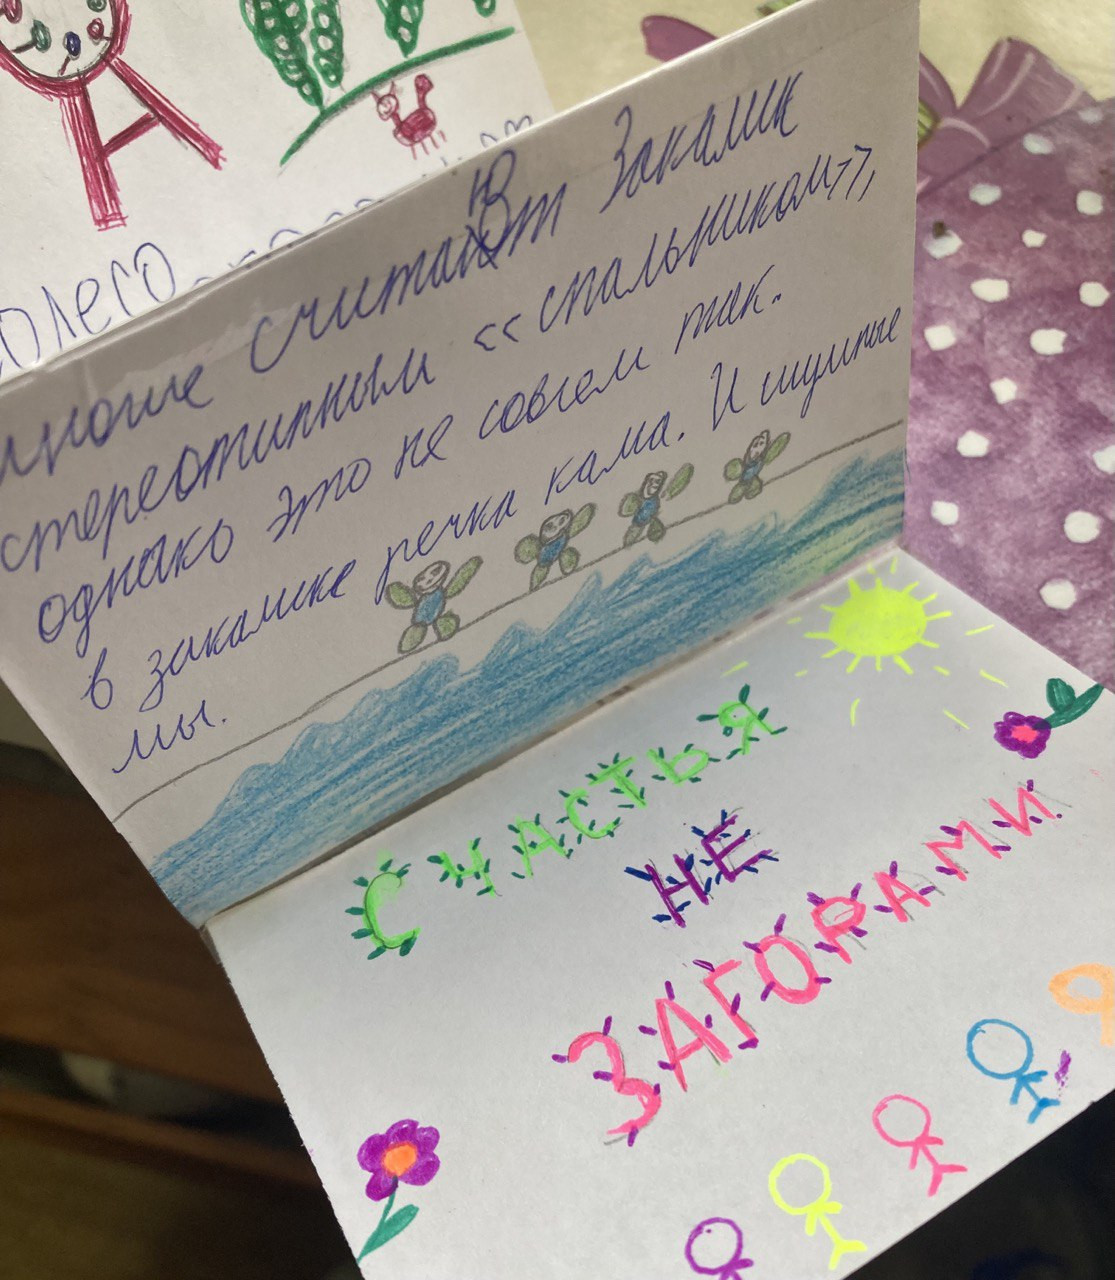 олесо
многие считают Закамск
стереотипным «спальником»,
однако это не совсем так.
в закамске речка кама. И шумные
мы.
СЧАСТЬЯ
НЕ
ЗАГОРАМИ